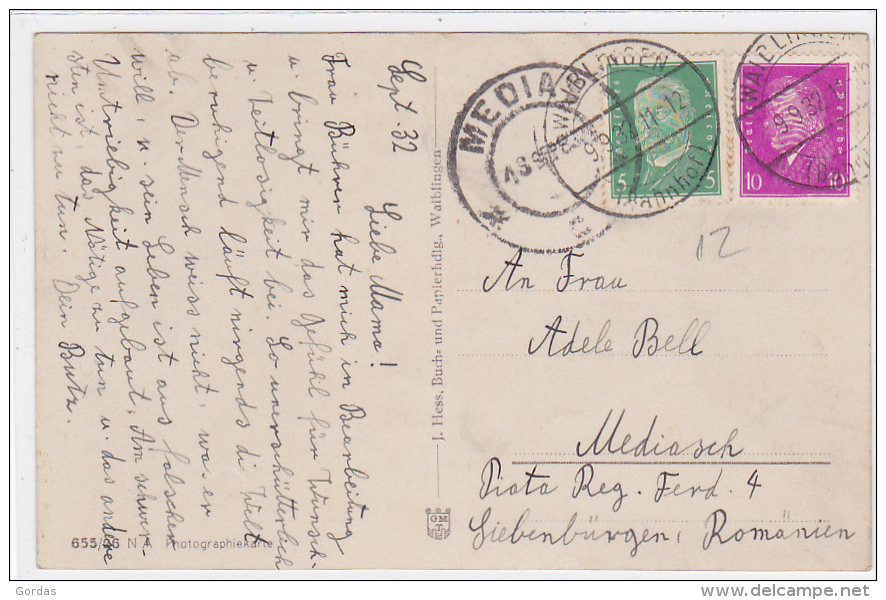 Sept. 32
Liebe Mama!
Frau Bührer hat mich in Bearbeitung
u. bringt mir das Gefühl für Wunsch-
u. Zeitlosigkeit bei. So unerschütterlich
beruhigend läuft nirgends die Welt
ab. Der Mensch weiss nicht, was er
will, u. sein Leben ist aus falscher
Umtriebigkeit aufgebaut. Am schwer-
sten ist, das Nötige zu tun u. das andere
nicht zu tun. Dein Butz.
655/46 N Photographiekarte
J. Hess, Buch- und Papierhdlg., Waiblingen
GM
MEDIA
WAIBLINGEN
9.9.32.11-12
(Bahnhof)
5 5
WAIBLINGEN
9.9.32.11-12
10 10
12
An Frau
Adele Bell
Mediasch
Piata Reg. Ferd. 4
Siebenbürgen, Romänien
Gordas
delcampe.net